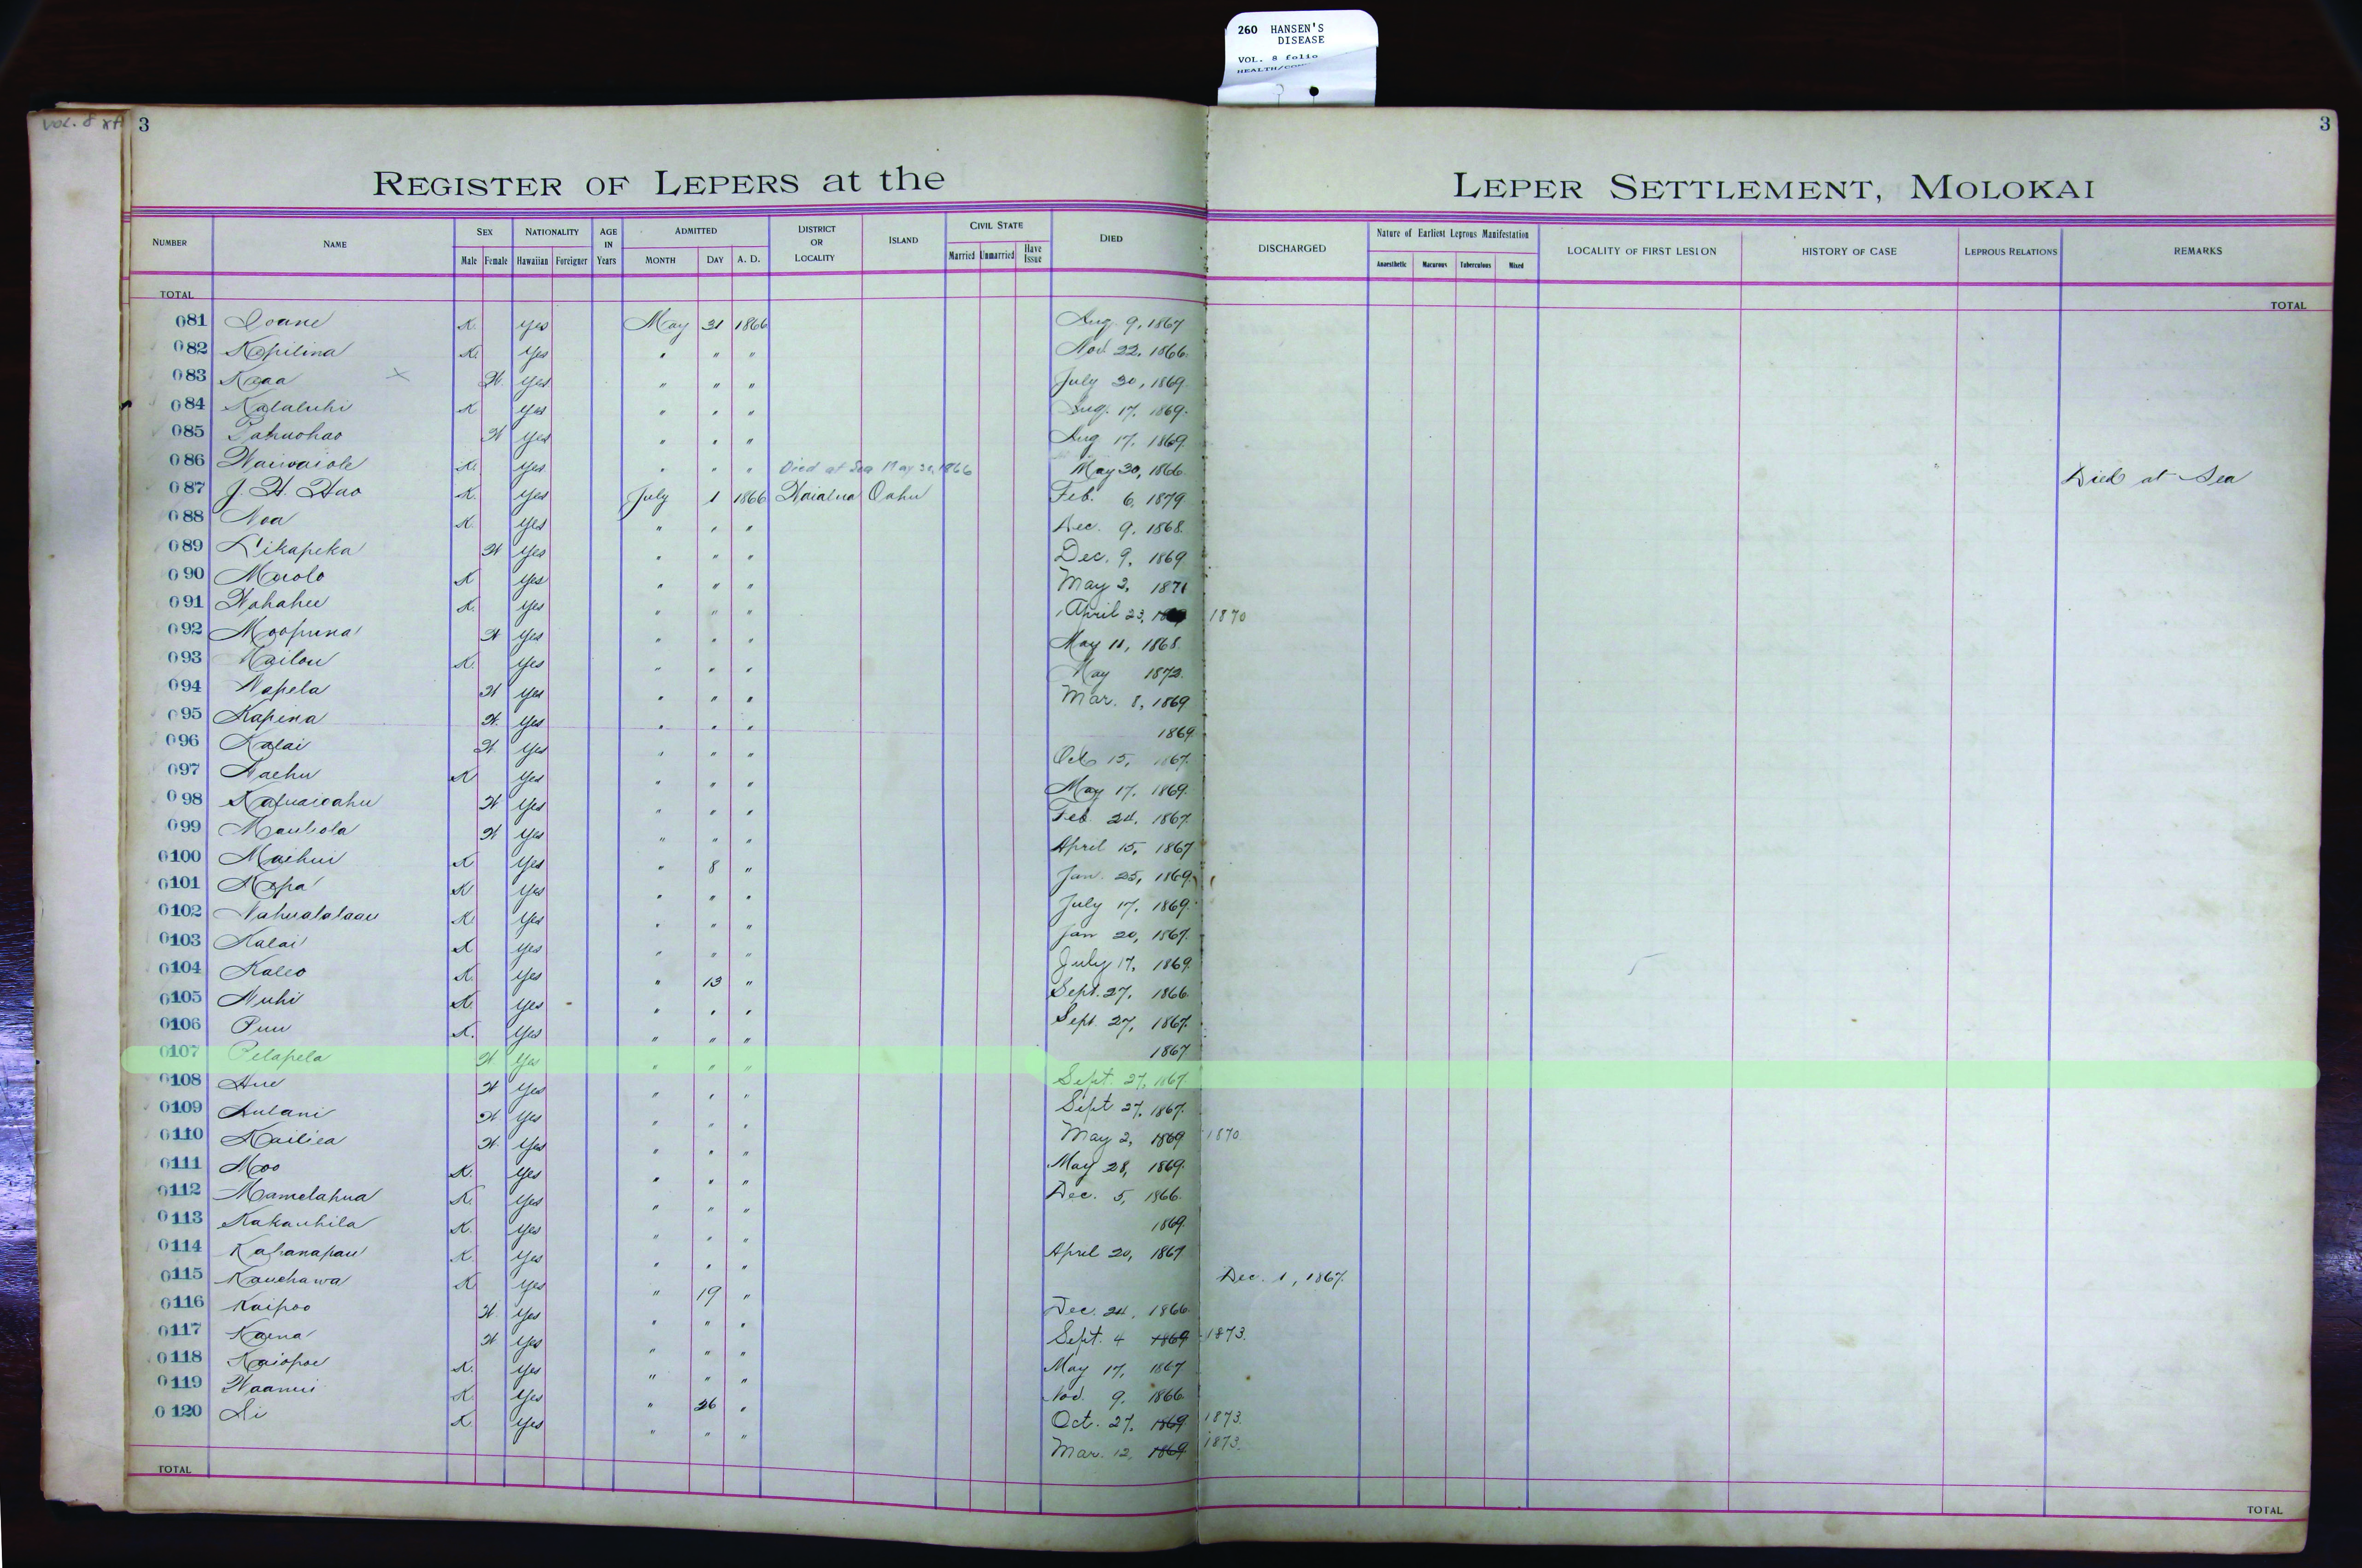 260 HANSEN'S
DISEASE
VOL. 8 folio
VOL. 8
3
3
REGISTER OF LEPERS at the LEPER SETTLEMENT, MOLOKAI
NUMBER NAME SEX NATIONALITY AGE IN Years ADMITTED DISTRICT OR LOCALITY ISLAND CIVIL STATE DIED DISCHARGED Nature of Earliest Leprous Manifestation LOCALITY OF FIRST LESION HISTORY OF CASE LEPROUS RELATIONS REMARKS
Male Female Hawaiian Foreigner MONTH DAY A. D. Married Unmarried Have Issue Anaesthetic Macurous Tuberculous Mixed
TOTAL TOTAL
081 Ioane K. yes May 31 1866 Aug. 9, 1867
082 Kapilina K. yes " " " Nov. 22, 1866.
083 Kaaa × W. yes " " " July 30, 1869.
084 Kalaluhi K yes " " " Aug. 17, 1869.
085 Pahuohao W yes " " " Aug 17, 1869.
086 Waiwaiole K. yes " " " Died at Sea May 30, 1866 May 30, 1866. Died at Sea
087 J. H. Hao K. yes July 1 1866 Waialua Oahu Feb. 6, 1879
088 Noa K. yes " " " Dec. 9, 1868.
089 Likapeka W yes " " " Dec. 9, 1869
090 Maolo K yes " " " May 2, 1871
091 Wahahee K. yes " " " April 23, 1870
092 Moopuna W yes " " " May 11, 1868.
093 Kailou K. yes " " " May 1872.
094 Napela W yes " " " Mar. 8, 1869
095 Kapena W. yes " " " 1869.
096 Kalai W. yes " " " Oct. 15, 1867.
097 Naehu K yes " " " May 17, 1869.
098 Kapuaioahu W yes " " " Feb. 24, 1867.
099 Mauliola W yes " " " April 15, 1867
0100 Maihui K yes " 8 " Jan. 25, 1869.
0101 Napa K yes " " " July 17, 1869.
0102 Nahualalaau K. yes " " " Jan 20, 1867.
0103 Kalai K yes " " " July 17, 1869.
0104 Kaleo K. yes " 13 " Sept. 27, 1866.
0105 Nuhi K. yes " " " Sept. 27, 1867.
0106 Puu K. yes " " " 1867
0107 Pelapela W yes " " " Sept. 27, 1867.
0108 Aue W yes " " " Sept 27, 1867.
0109 Aulani W. yes " " " May 2, 1869 1870.
0110 Kailiea W. yes " " " May 28, 1869.
0111 Moo K. yes " " " Dec. 5, 1866.
0112 Mamelahua K. yes " " " 1869.
0113 Kakauhila K. yes " " " April 20, 1867
0114 Kahanapau K. yes " " " Dec. 1, 1867.
0115 Kauehawa K. yes " 19 " Dec. 24, 1866.
0116 Kaipoo W. yes " " " Sept. 4 1869 1873.
0117 Kaena W yes " " " May 17, 1867
0118 Kaiopoe K. yes " " " Nov. 9, 1866.
0119 Waanui K. yes " 26 " Oct. 27, 1869 1873.
0120 Ai K. yes " " " Mar. 12, 1869 1873.
TOTAL TOTAL